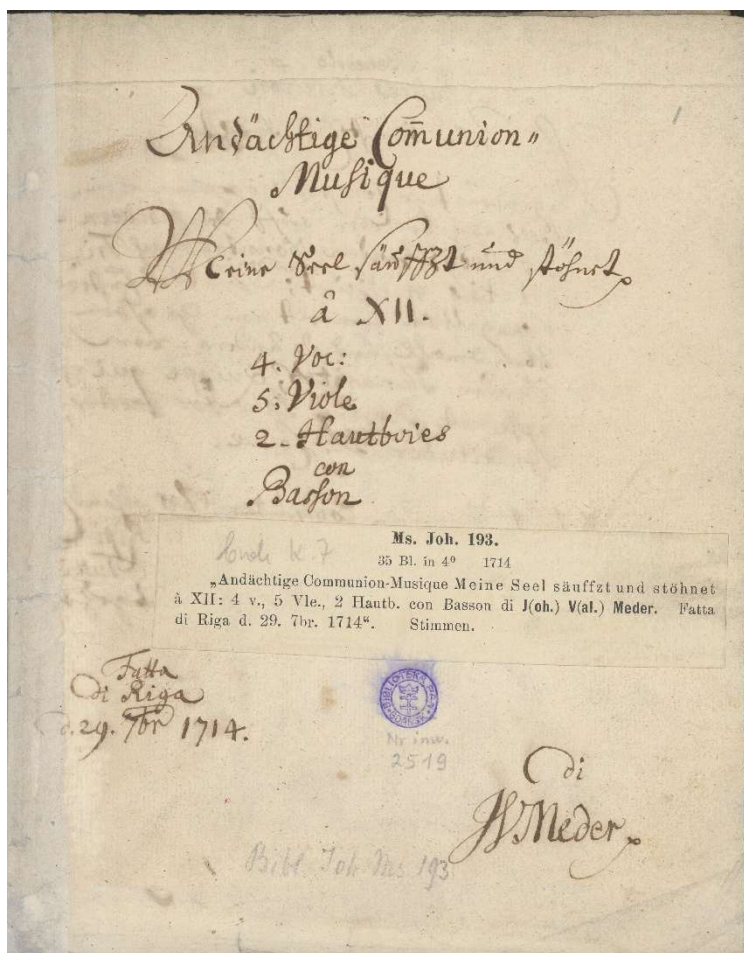 Andächtige Com̄union-
Musique
Meine Seel säuffzt und stöhnet
â XII.
4. Voc:
5. Viole
2. Hautboies
con
Basson
Ende K. 7
Ms. Joh. 193.
35 Bl. in 4⁰ 1714
„Andächtige Communion-Musique Meine Seel säuffzt und stöhnet
à XII: 4 v., 5 Vle., 2 Hautb. con Basson di J(oh.) V(al.) Meder. Fatta
di Riga d. 29. 7br. 1714“. Stimmen.
Fatta
di Riga
d. 29. 7br 1714.
BIBLIOTEKA
GDAŃSK
Nr inw.
2519
di
JVMeder
Bibl. Joh Ms 193